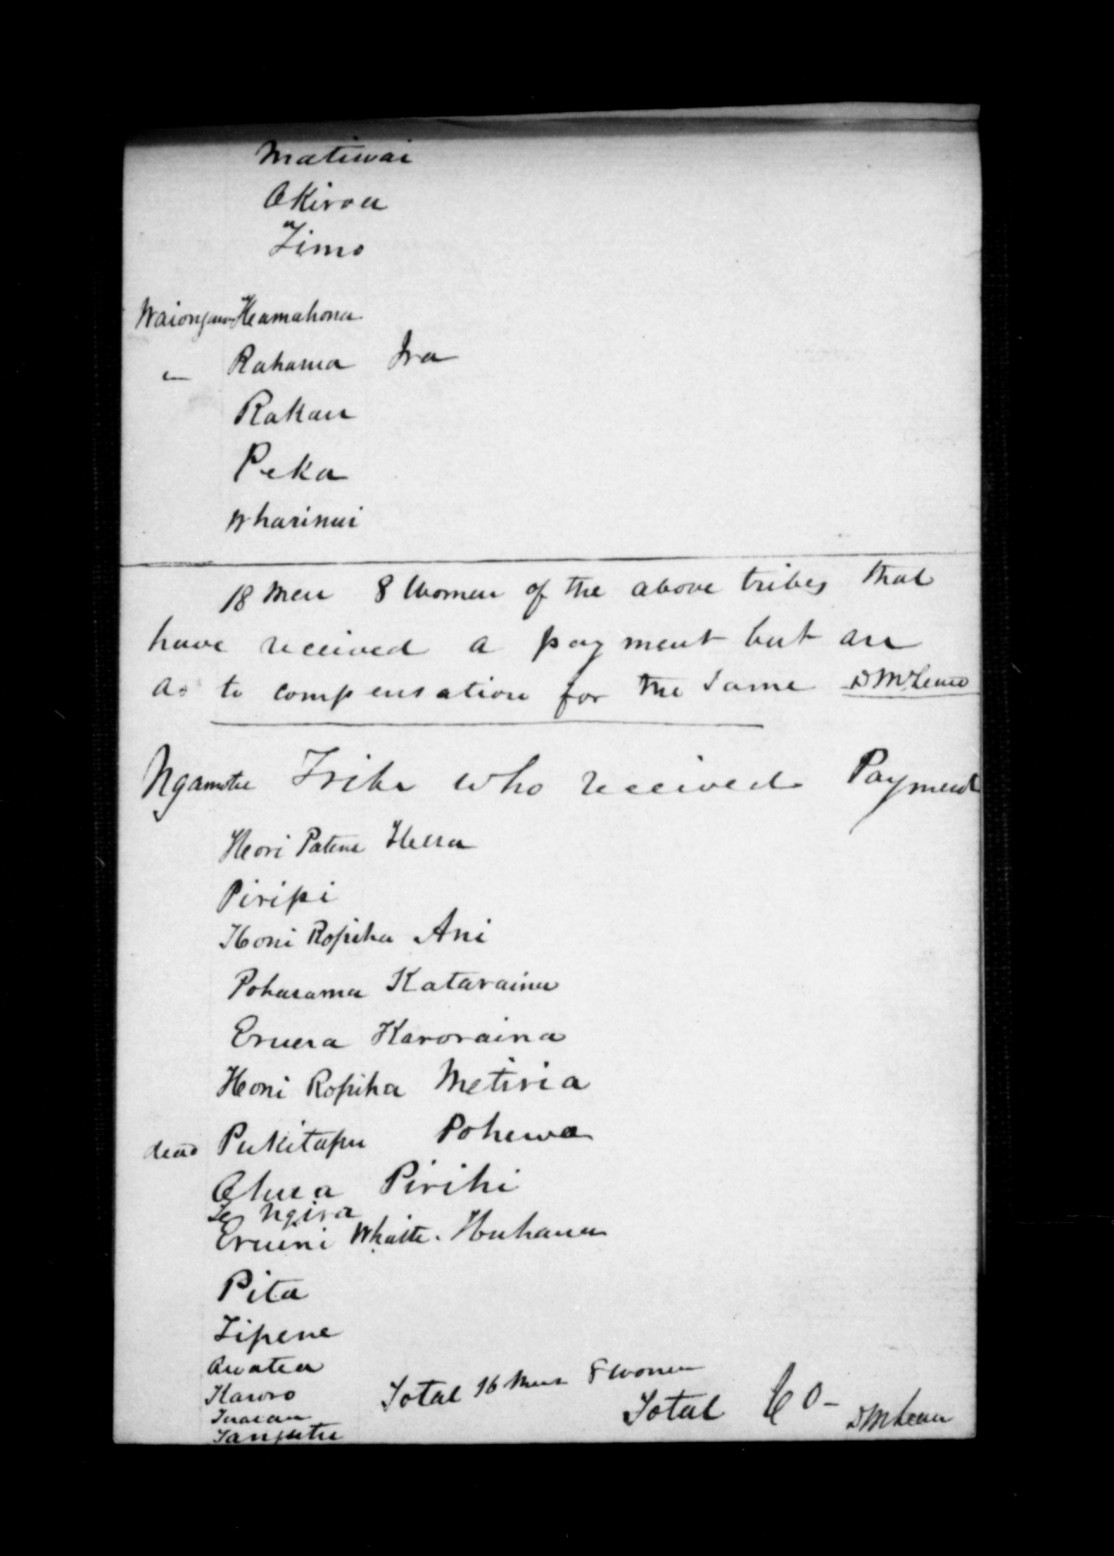 Matiwai
Akiroa
Timo
Waiongana Heamahona
" Rahama Ira
Rakau
Peka
Wharinui
18 Men 8 Women of the above tribes that
have received a payment but are
as to compensation for the same D McLean
Ngamotu Tribe who received Payment
Hori Patene Hera
Piripi
Honi Ropiha Ani
Poharama Kataraina
Eruera Karoraina
Honi Ropiha Metiria
dead Pukitapu Pohewa
Pirihi
Te Ngira
Erueni
Pita
Tipene
Awatea
Kawro
Total 16 Men 8 Women
Total
D McLean